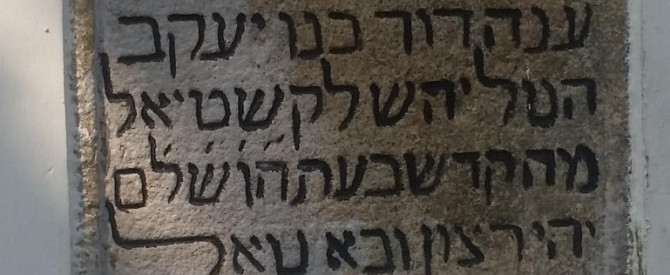 ענה דור בנו יעקב
הטל יהש לקשטיאל
מהקדש בעת הושלם
יהי רצון ובא גואל